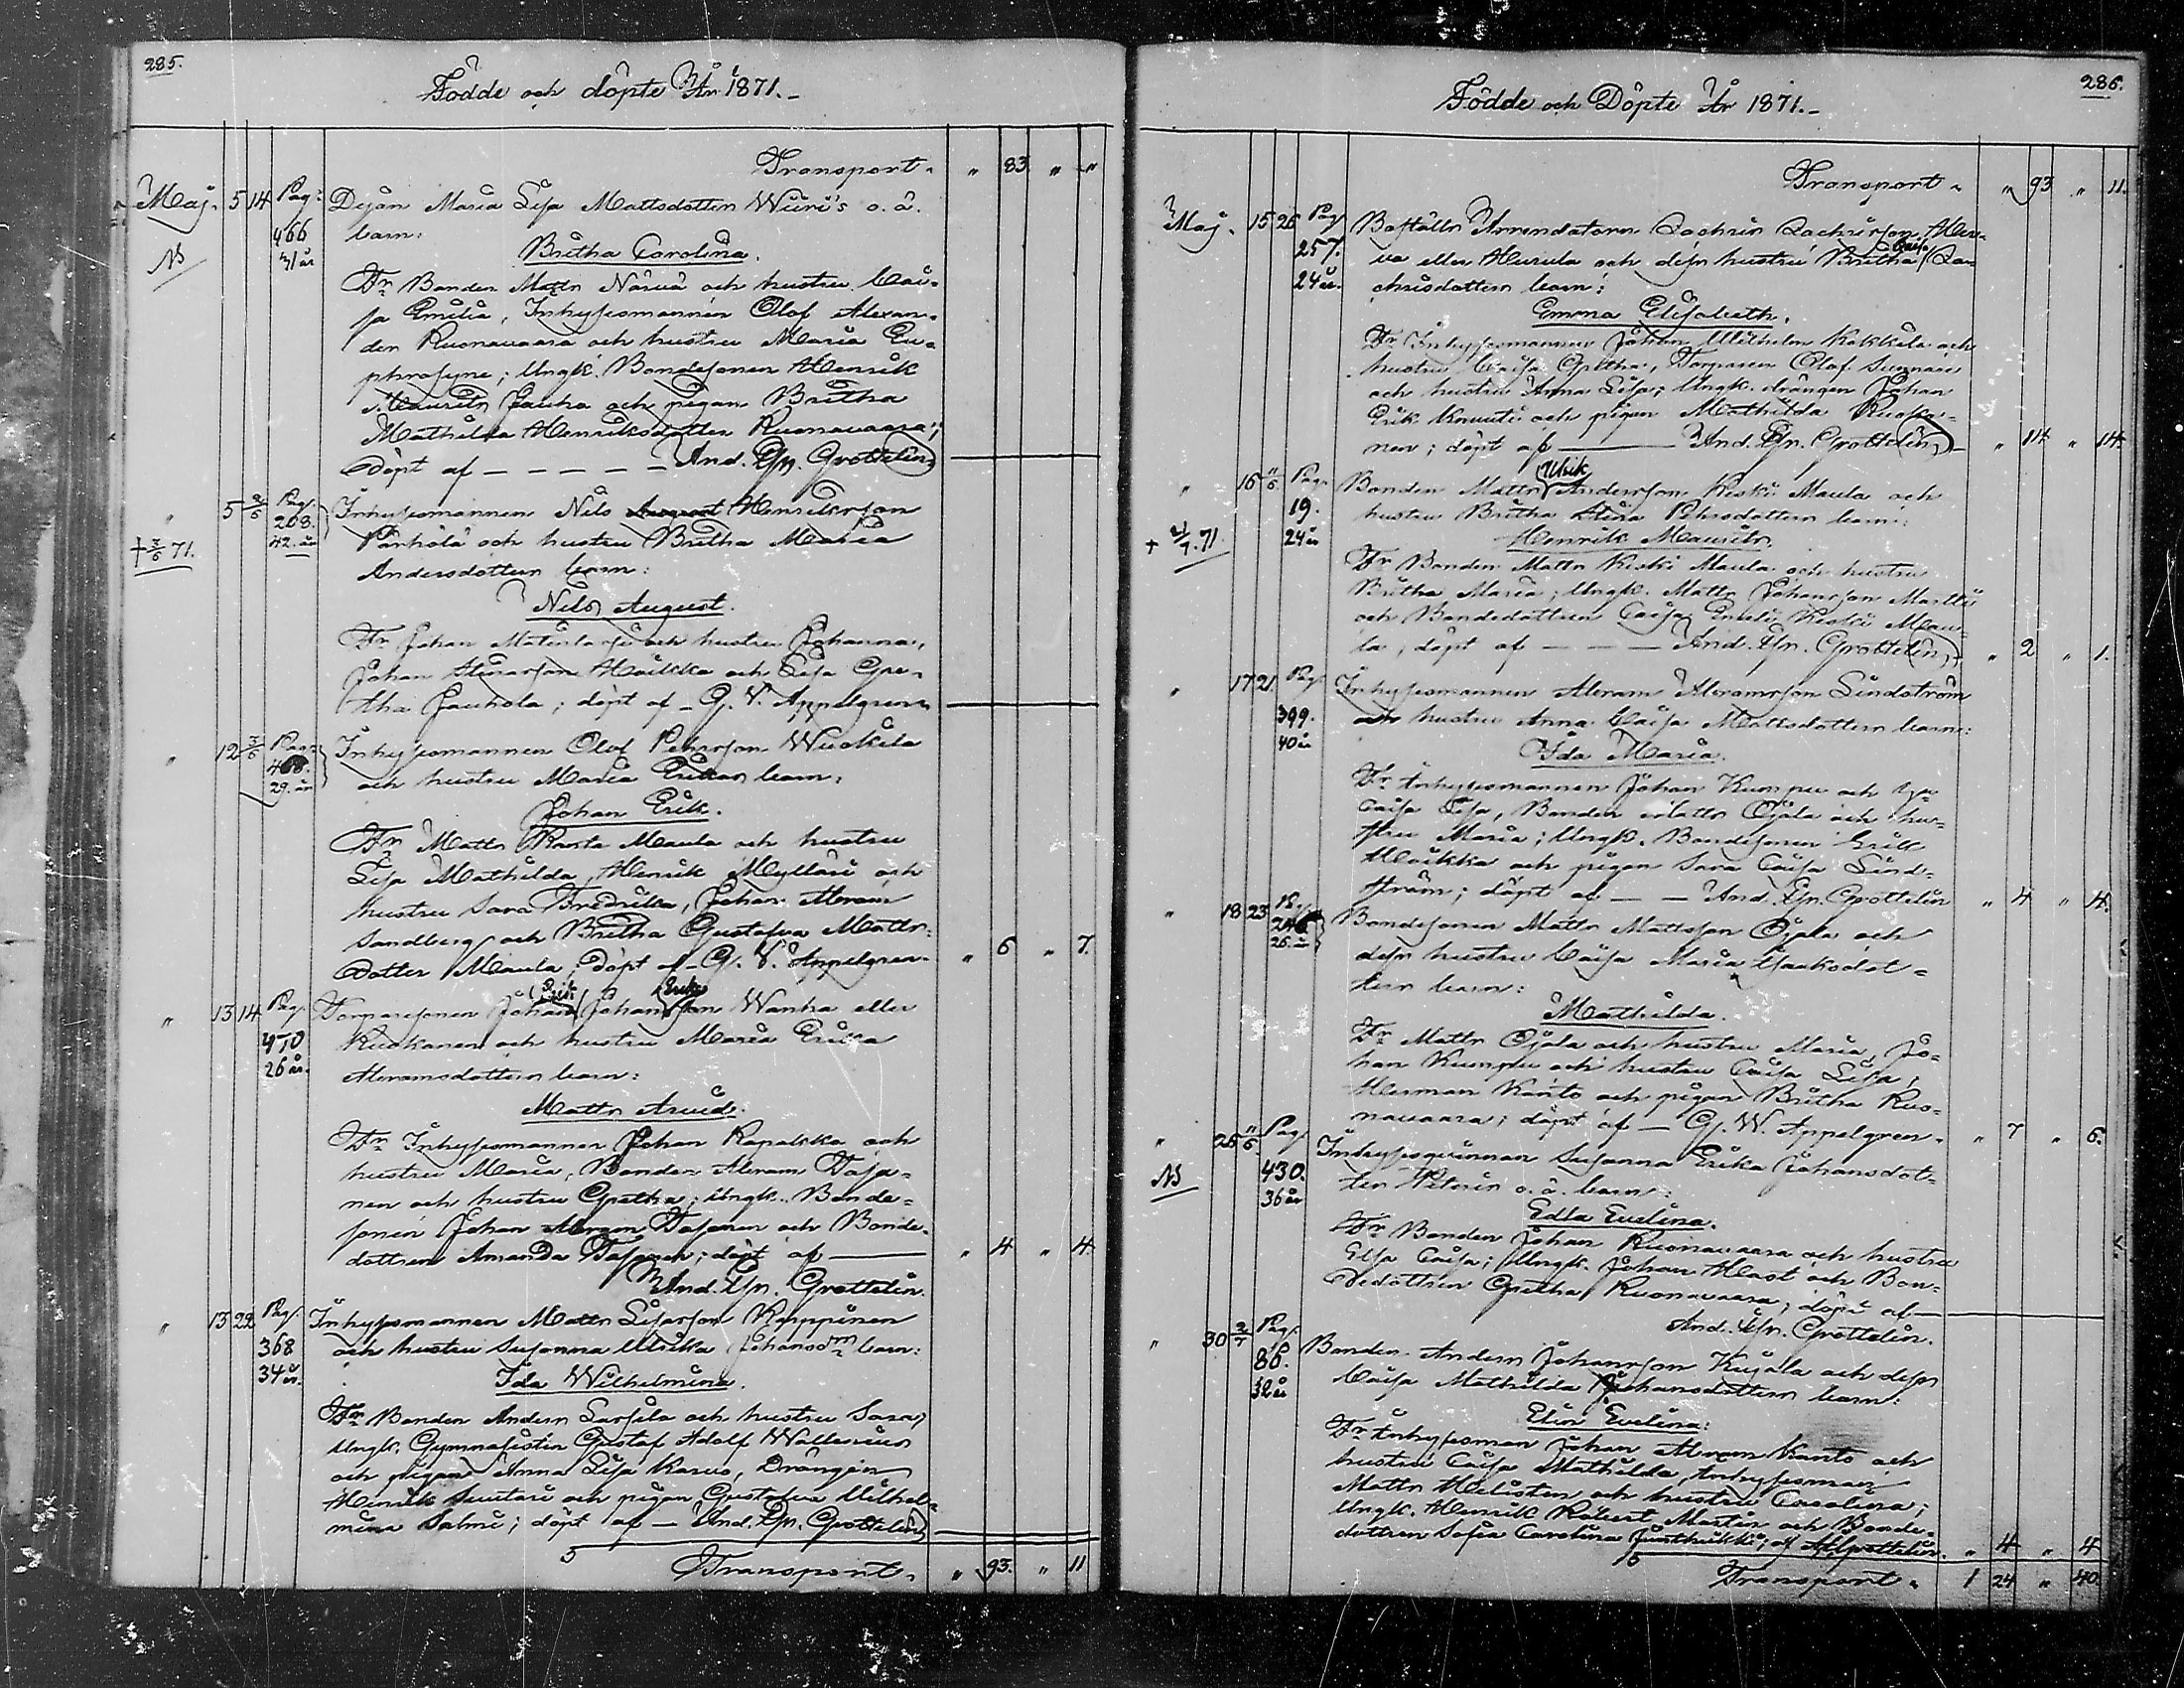 285.
Födde och döpte År 1871.-
Transport. " 83. " "
Maj. 5 14 Pag: Dejan Maria Lisa Mattsdotter Wiiri's o. ä.
NB 466 31 år barn:
Britha Carolina.
Fr Bonden Matts Närvä och hustru Cai-
sa Emilia, Inhysesmannen Olof Alexan-
der Ruonavaara och hustru Maria Eu-
phrosyne; Ungk. Bondesonen Henrik
Mauritz Jauha och pigan Britha
Mathilda Henriksdotter Ruonavaara;
döpt af — — — — — And. Joh. Grottelin
" 5 2/6 Pag. Inhysesmannen Nils August Henriksson
+ 3/6 71. 208. 42. år Parhola och hustru Britha Maria
Andersdotters barn:
Nils August.
Fr Johan Matinlassi och hustru Johanna,
Johan Henriksson Haikka och Lisa Gre-
tha Jauhola; döpt af - G. W. Appelgren
" 12 3/6 Pag. Inhysesmannen Olof Pehrsson Wuokila
468. 29. år och hustru Maria Erikas barn:
Johan Erik.
Fr Matts Ranta Maula och hustru
Lisa Mathilda, Henrik Mylläri och
hustru Sara Fredrika, Johan Abram
Sandberg och Britha Gustafva Matts-
dotter Maula; döpt af G. W. Appelgren. " 6 " 7.
" 13 14 Pag. Torparesonen Johan Erik Johansson Wanha eller
470 26 år. Kuokkanen och hustru Maria Erika
Abramsdotters barn:
Matts Arvid.
Fr Inhysesmannen Johan Kapakka och
hustru Maria, Bonden Abram Tasa-
nen och hustru Gretha; Ungk. Bonde-
sonen Johan Abram Tasanen och Bonde-
dottren Amanda Tasanen; döpt af — " 4 " 4.
And. Joh. Grottelin.
" 13 22 Pag. Inhysesmannen Matts Lisasson Karppinen
368 34 år. och hustru Susanna Ulrika Johansdrs barn:
Ida Wilhelmina.
Fr Bonden Anders Larsila och hustru Sara;
Ungk. Gymnasisten Gustaf Adolf Wallenius
och pigan Anna Lisa Karvo, Drängen
Henrik Suutari och pigan Gustafva Wilhel-
mina Salmi; döpt af — And. Joh. Grottelin
5
Transport. " 93. " 11
286.
Födde och Döpte År 1871.-
Transport. " 93 " 11.
Maj. 15 26 Pag. Boställs Arrendatorn Zachris Zachrisson Her-
257. va eller Hurula och dess hustru Britha Caisa Za-
24 år. chrisdotters barn:
Emma Elisabeth.
Fr Inhysesmannen Johan Wilhelm Kokkila och
hustru Caisa Gretha, Torparen Olof Sunnari
och hustru Anna Lisa; Ungk. drängen Johan
Erik Knuuti och pigan Mathilda Ruoka-
nen; döpt af — And. Joh. Grottelin " 14 " 14.
" 16 11/6 Pag. Bonden Matts Ulrik Andersson Keski Maula och
19. hustru Britha Stina Pehrsdotters barn:
+ 2/7. 71. 24 år Henrik Mauritz.
Fr Bonden Matts Keski Maula och hustru
Britha Maria; Ungk. Matts Johansson Marttii
och Bondedottren Caisa Emili Keski Mau-
la, döpt af — — — And. Joh. Grottelin " 2 " 1.
" 17 21. Pag. Inhysesmannen Abram Abramsson Lindström
399. 40 år och hustru Anna Caisa Mattsdotters barn:
Ida Maria.
Fr Inhysesmannen Johan Kumpu och hu
Caisa Lisa, Bonden Matts Ojala och hu-
stru Maria; Ungk. Bondesonen Erik
Haikka och pigan Sara Caisa Lind-
ström; döpt af — — And. Joh. Grottelin " 4 " 4.
" 18 23 Bondesonen Matts Mattsson Ojala och
26. år dess hustru Caisa Maria Isaksdot-
ters barn:
Mathilda.
Fr Matts Ojala och hustru Maria, Jo-
han Kumpu och hustru Caisa Lisa,
Herman Kanto och pigan Britha Ruo-
navaara; döpt af — G. W. Appelgren. " 7 " 6.
" 26 11/6 Pag. Inhysesqvinnan Susanna Erika Johansdot-
NB 430. 36 år ter o. ä. barn:
Edla Evelina.
Fr Bonden Johan Ruonavaara och hustru
Elsa Caisa; Ungk. Johan Hast och Bon-
dedottren Gretha Ruonavaara; döpt af —
And. Joh. Grottelin.
" 30 2/7 Pag. Bonden Anders Johansson Kujala och dess
86. 32 år Caisa Mathilda Johansdotters barn:
Elin Evelina:
Fr Inhysesman Johan Abram Kanto och
hustru Caisa Mathilda, Inhysesman
Matts Helisten och hustru Carolina;
Ungk. Henrik Robert Martin och Bonde-
dottren Sofia Carolina Juntikki; af Grottelin. " 4 " 4
5
Transport. 1 24 " 40.